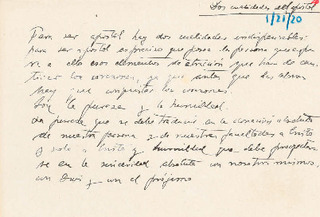 Las cualidades del apóstol
1/21/20
Para ser apóstol hay dos cualidades indispensables:
para ser apóstol es preciso que posea la persona que aspira
a ello esos elementos de atracción que han de cau-
tivar los corazones, ya que antes que las almas
hay que conquistar los corazones.
Son la pureza y la humildad.
La pureza que se debe traducir en la donación absoluta
de nuestra persona y de nuestras facultades a Cristo
y solo a Cristo y humildad que debe
en la sinceridad absoluta con nosotros mismos,
con Dios y con el prójimo